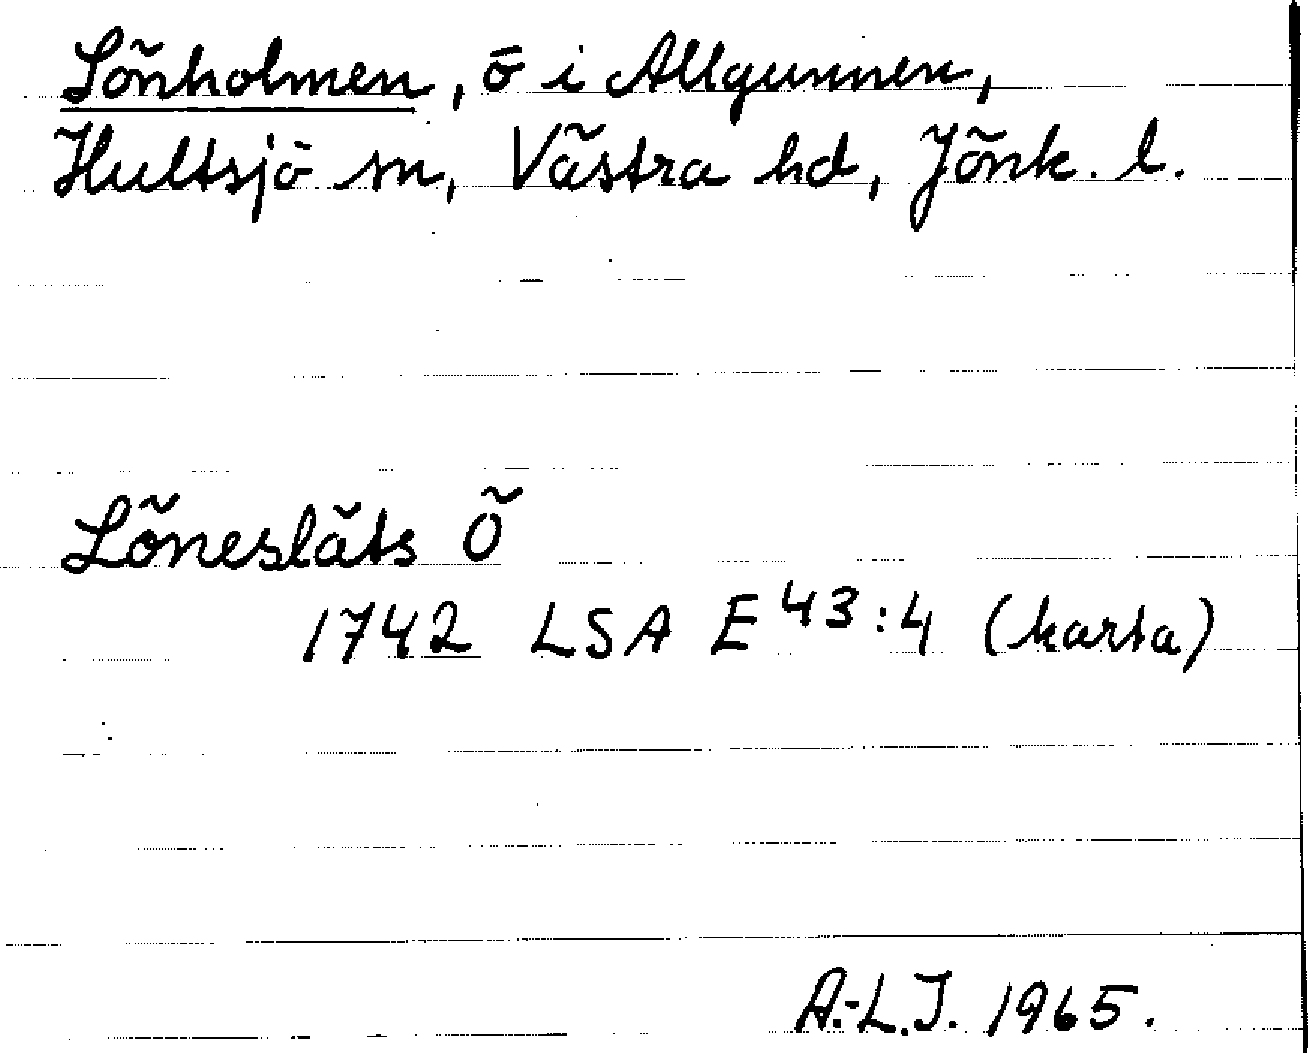 Lönholmen, ö i Allgunnen,
Hultsjö sn, Västra hd, Jönk. l.
Lönesläts Ö
1742 LSA E 43:4 (karta)
A.-L.J. 1965.